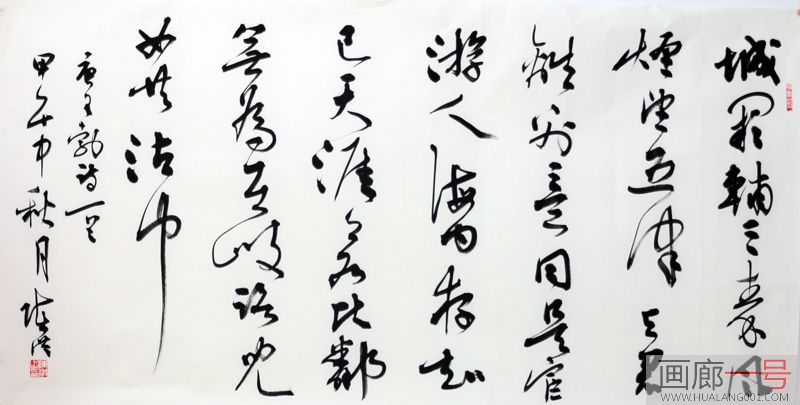 城闕輔三秦風
煙望五津與君
離別意同是宦
游人海內存知
己天涯若比鄰
無為在歧路兒
女共沾巾
唐王勃詩一首
甲午中秋月
画廊一号
WWW.HUALANG001.COM